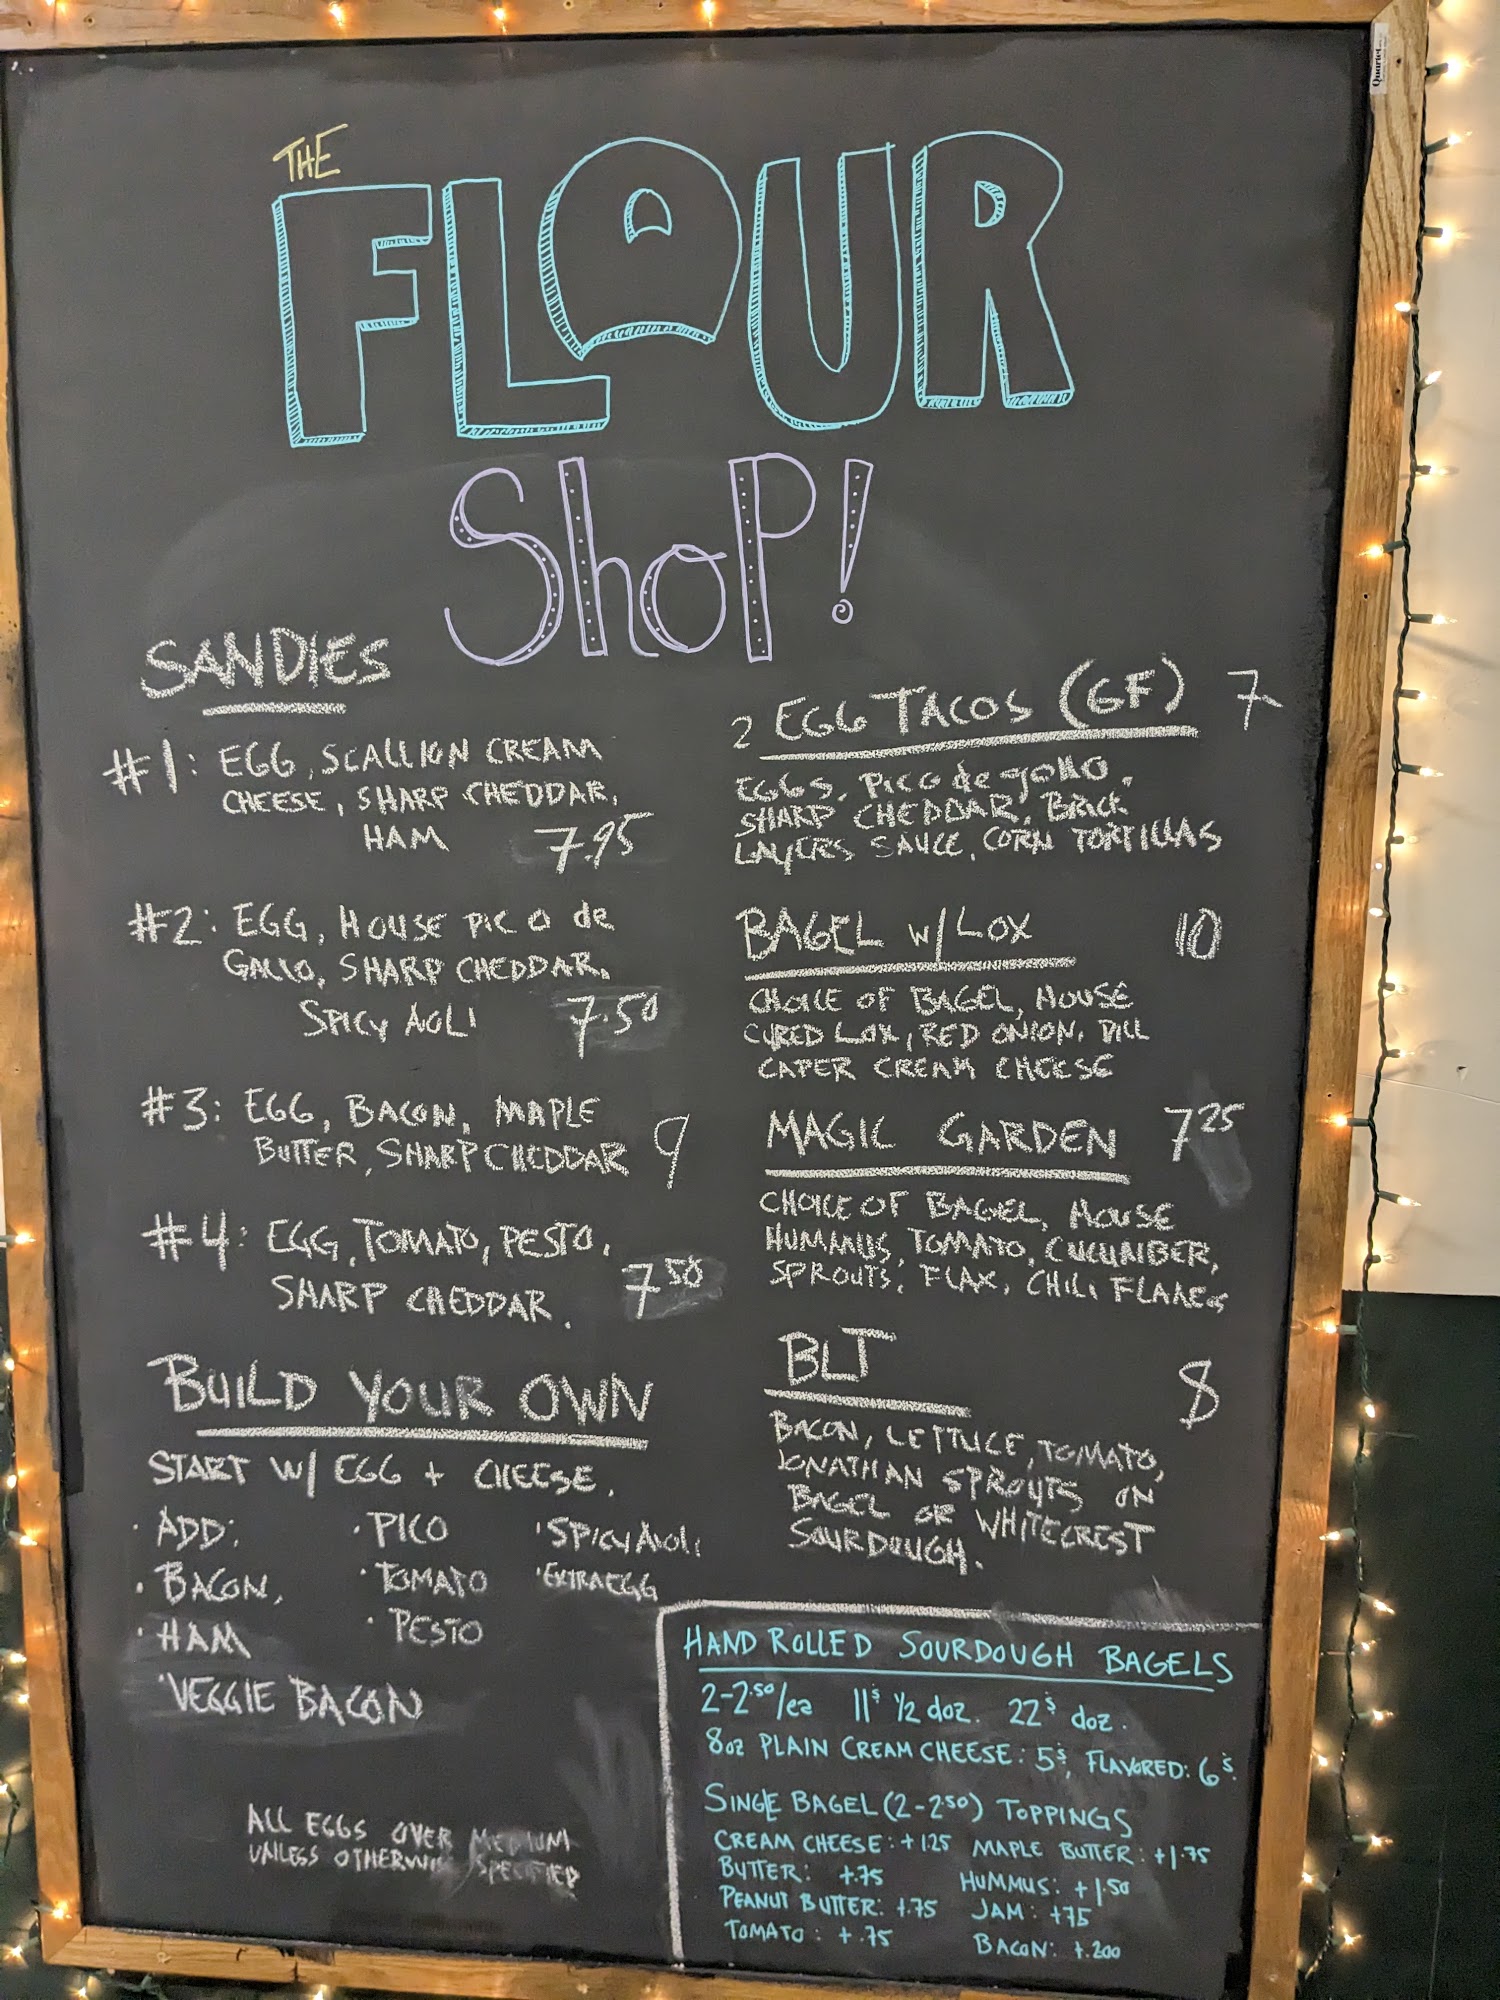 THE
FLOUR
Shop!
SANDIES
#1: EGG, SCALLION CREAM
CHEESE, SHARP CHEDDAR,
HAM 7.95
#2: EGG, HOUSE PICO de
GALLO, SHARP CHEDDAR,
SPICY AOLI 7.50
#3: EGG, BACON, MAPLE
BUTTER, SHARP CHEDDAR 9
#4: EGG, TOMATO, PESTO,
SHARP CHEDDAR. 7 50
BUILD YOUR OWN
START W/ EGG + CHEESE.
· ADD:
· BACON,
· HAM
· VEGGIE BACON
· PICO
· TOMATO
· PESTO
· SPICY AOLI
· EXTRA EGG
ALL EGGS OVER MEDIUM
UNLESS OTHERWISE SPECIFIED
2 EGG TACOS (GF) 7
EGGS, PICO de GALLO,
SHARP CHEDDAR, BRICK
LAYERS SAUCE, CORN TORTILLAS
BAGEL w/ LOX 10
CHOICE OF BAGEL, HOUSE
CURED LOX, RED ONION, DILL
CAPER CREAM CHEESE
MAGIC GARDEN 7 25
CHOICE OF BAGEL, HOUSE
HUMMUS, TOMATO, CUCUMBER,
SPROUTS, FLAX, CHILI FLAKES
BLT 8
BACON, LETTUCE, TOMATO,
JONATHAN SPROUTS ON
BAGEL OR WHITECREST
SOURDOUGH.
HAND ROLLED SOURDOUGH BAGELS
2-2.50/ea 11$ 1/2 doz. 22$ doz.
8oz PLAIN CREAM CHEESE: 5$, FLAVORED: 6$.
SINGLE BAGEL (2-2 50) TOPPINGS
CREAM CHEESE: +1.25 MAPLE BUTTER: +1.75
BUTTER: +.75 HUMMUS: +1.50
PEANUT BUTTER: +.75 JAM: +75
TOMATO: +.75 BACON: +.200
Quartet